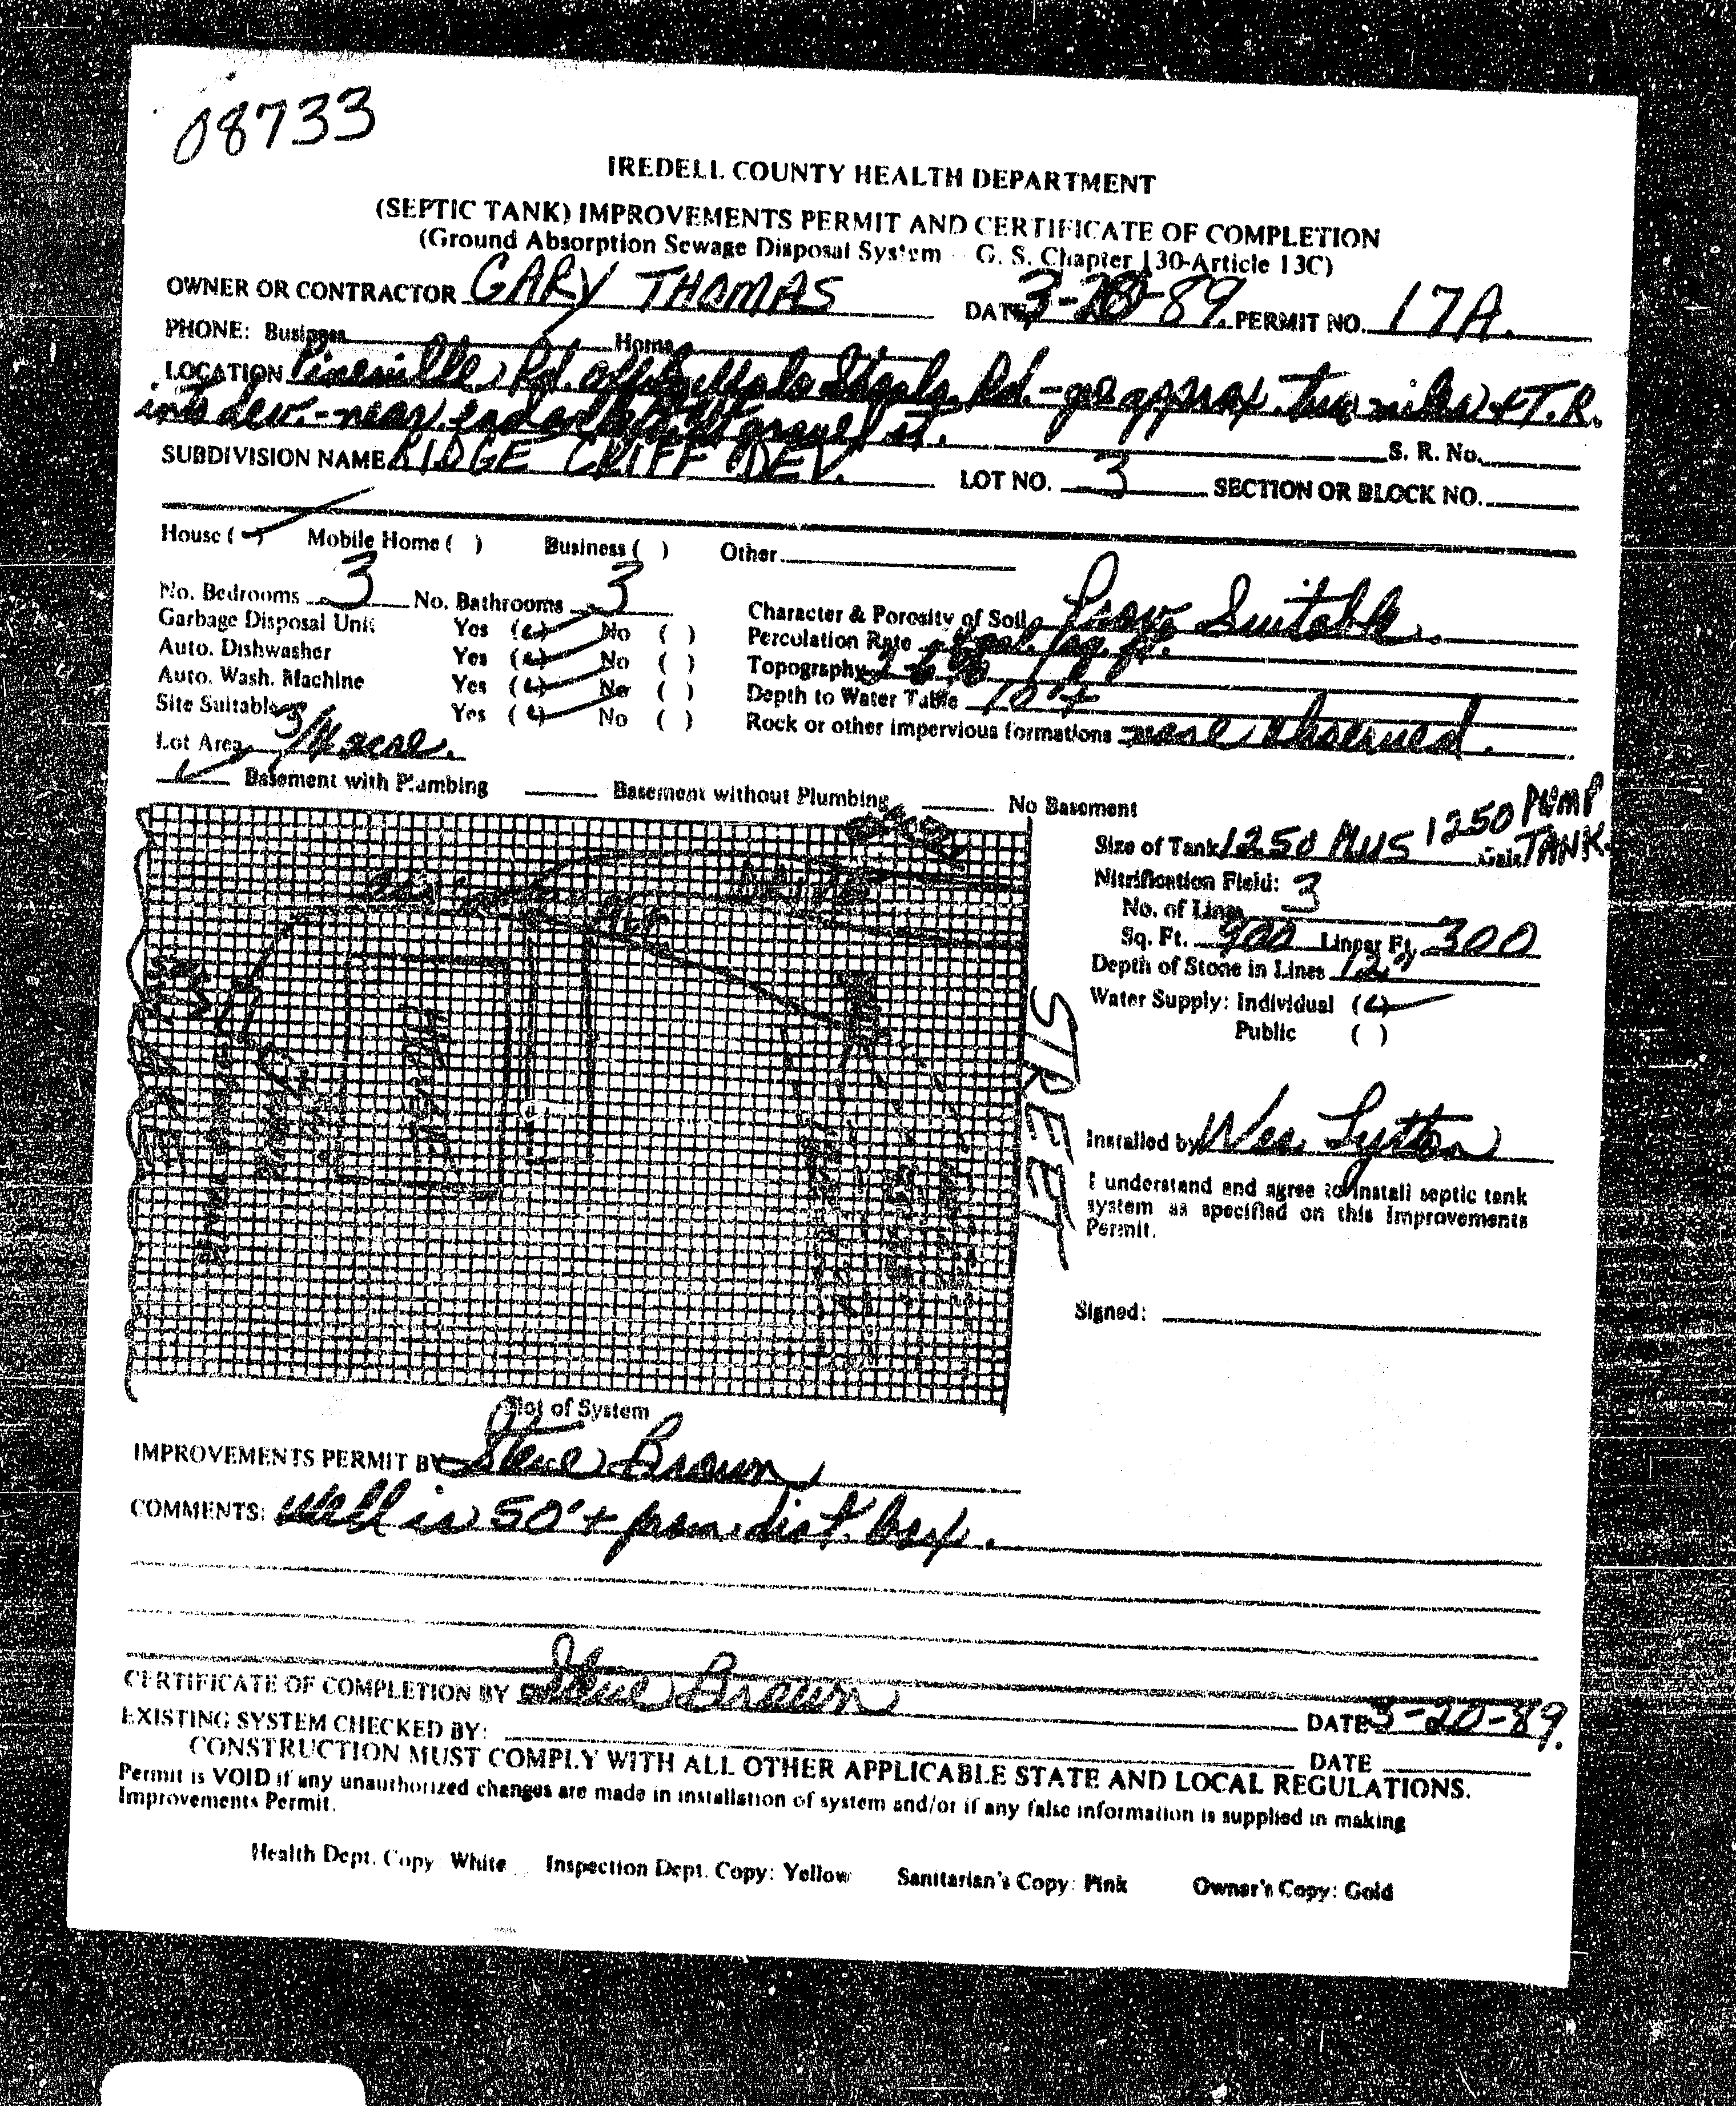 08733
IREDELL COUNTY HEALTH DEPARTMENT
(SEPTIC TANK) IMPROVEMENTS PERMIT AND CERTIFICATE OF COMPLETION
(Ground Absorption Sewage Disposal System - G. S. Chapter 130-Article 13C)
OWNER OR CONTRACTOR GARY THOMAS DATE 3-20-89. PERMIT NO. 17A.
PHONE: Business Home
LOCATION Pineville Rd. off Buffalo Shoals Rd. - go approx. two miles + T.R.
into dev. - near end gravel st. S. R. No.
SUBDIVISION NAME RIDGE CLIFF DEV. LOT NO. 3 SECTION OR BLOCK NO.
House (✓) Mobile Home ( ) Business ( ) Other
No. Bedrooms 3 No. Bathrooms 3 Character & Porosity of Soil Prov. Suitable.
Garbage Disposal Unit Yes (✓) No ( ) Perculation Rate gal./sq. ft.
Auto. Dishwasher Yes (✓) No ( ) Topography
Auto. Wash. Machine Yes (✓) No ( ) Depth to Water Table 10'+
Site Suitable Yes (✓) No ( ) Rock or other impervious formations none observed.
Lot Area 3/4 acre.
✓ Basement with Plumbing Basement without Plumbing No Basement
Size of Tank 1250 PLUS 1250 PUMP TANK. Gals.
Nitrification Field:
No. of Lines 3
Sq. Ft. 900 Linear Ft. 300
Depth of Stone in Lines 12"
Water Supply: Individual (✓)
Public ( )
STREET
Installed by Wes Lytton
I understand and agree to install septic tank
system as specified on this Improvements
Permit.
Signed:
Plot of System
IMPROVEMENTS PERMIT BY Steve Brown
COMMENTS: Well is 50'+ from dist. box.
CERTIFICATE OF COMPLETION BY Steve Brown DATE 3-20-89.
EXISTING SYSTEM CHECKED BY: DATE
CONSTRUCTION MUST COMPLY WITH ALL OTHER APPLICABLE STATE AND LOCAL REGULATIONS.
Permit is VOID if any unauthorized changes are made in installation of system and/or if any false information is supplied in making
Improvements Permit.
Health Dept. Copy: White Inspection Dept. Copy: Yellow Sanitarian's Copy: Pink Owner's Copy: Gold